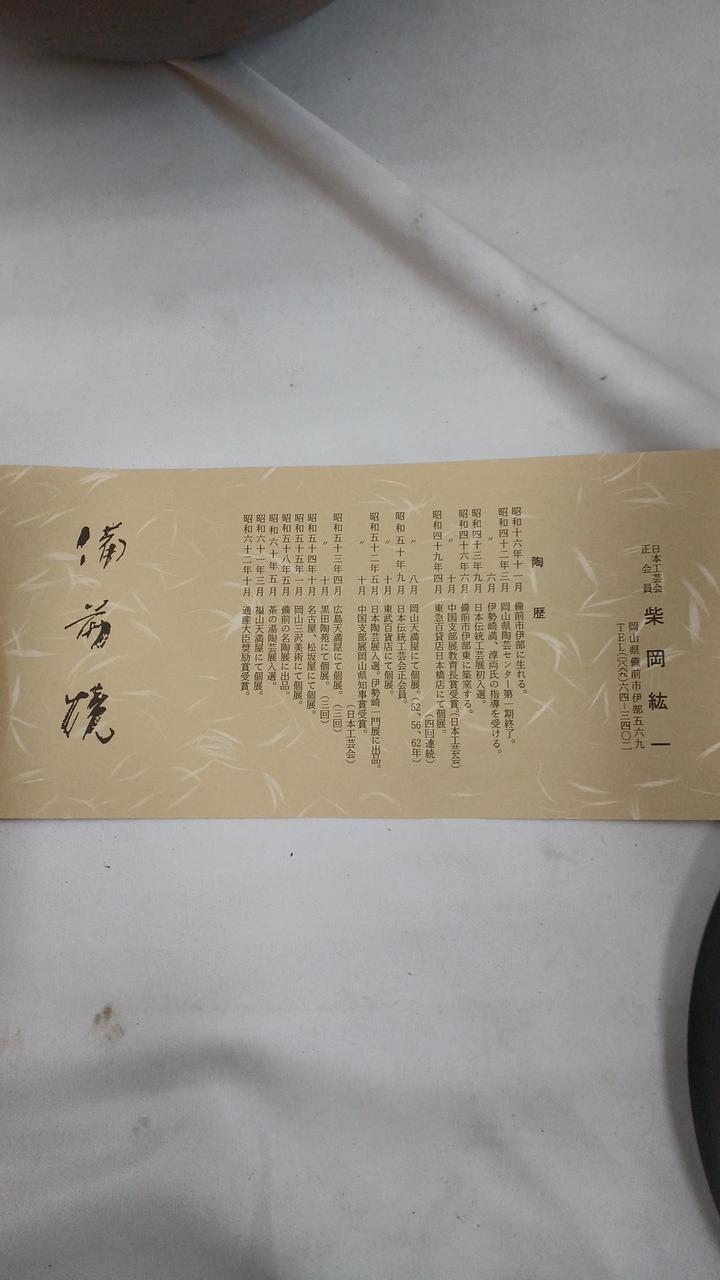 日本工芸会
正会員
柴岡紘一
岡山県備前市伊部五六九
TEL(〇八六九)六四－三四〇二
陶歴
昭和十六年十一月 備前市伊部に生れる。
昭和四十二年三月 岡山県陶芸センター第一期終了。
〃 六月 伊勢崎満、淳両氏の指導を受ける。
昭和四十三年九月 日本伝統工芸展初入選。
昭和四十六年六月 備前市伊部東に築窯する。
〃 十月 中国支部展教育長賞受賞。(日本工芸会)
昭和四十九年四月 東急百貨店日本橋店にて個展。
(四回連続)
〃 八月 岡山天満屋にて個展。(52、56、62年)
昭和五十年九月 日本伝統工芸会正会員。
〃 十月 東武百貨店にて個展。
昭和五十二年五月 日本陶芸展入選。伊勢崎一門展に出品。
〃 十月 中国支部展岡山県知事賞受賞。
(日本工芸会)
昭和五十三年四月 広島天満屋にて個展。(三回)
〃 十月 黒田陶苑にて個展。(三回)
昭和五十四年十月 名古屋、松坂屋にて個展。
昭和五十五年一月 岡山三沢美術にて個展。
昭和五十八年五月 備前の名陶展に出品。
昭和六十年五月 茶の湯陶芸展入選。
昭和六十一年三月 福山天満屋にて個展。
昭和六十二年十月 通産大臣奨励賞受賞。
備前焼